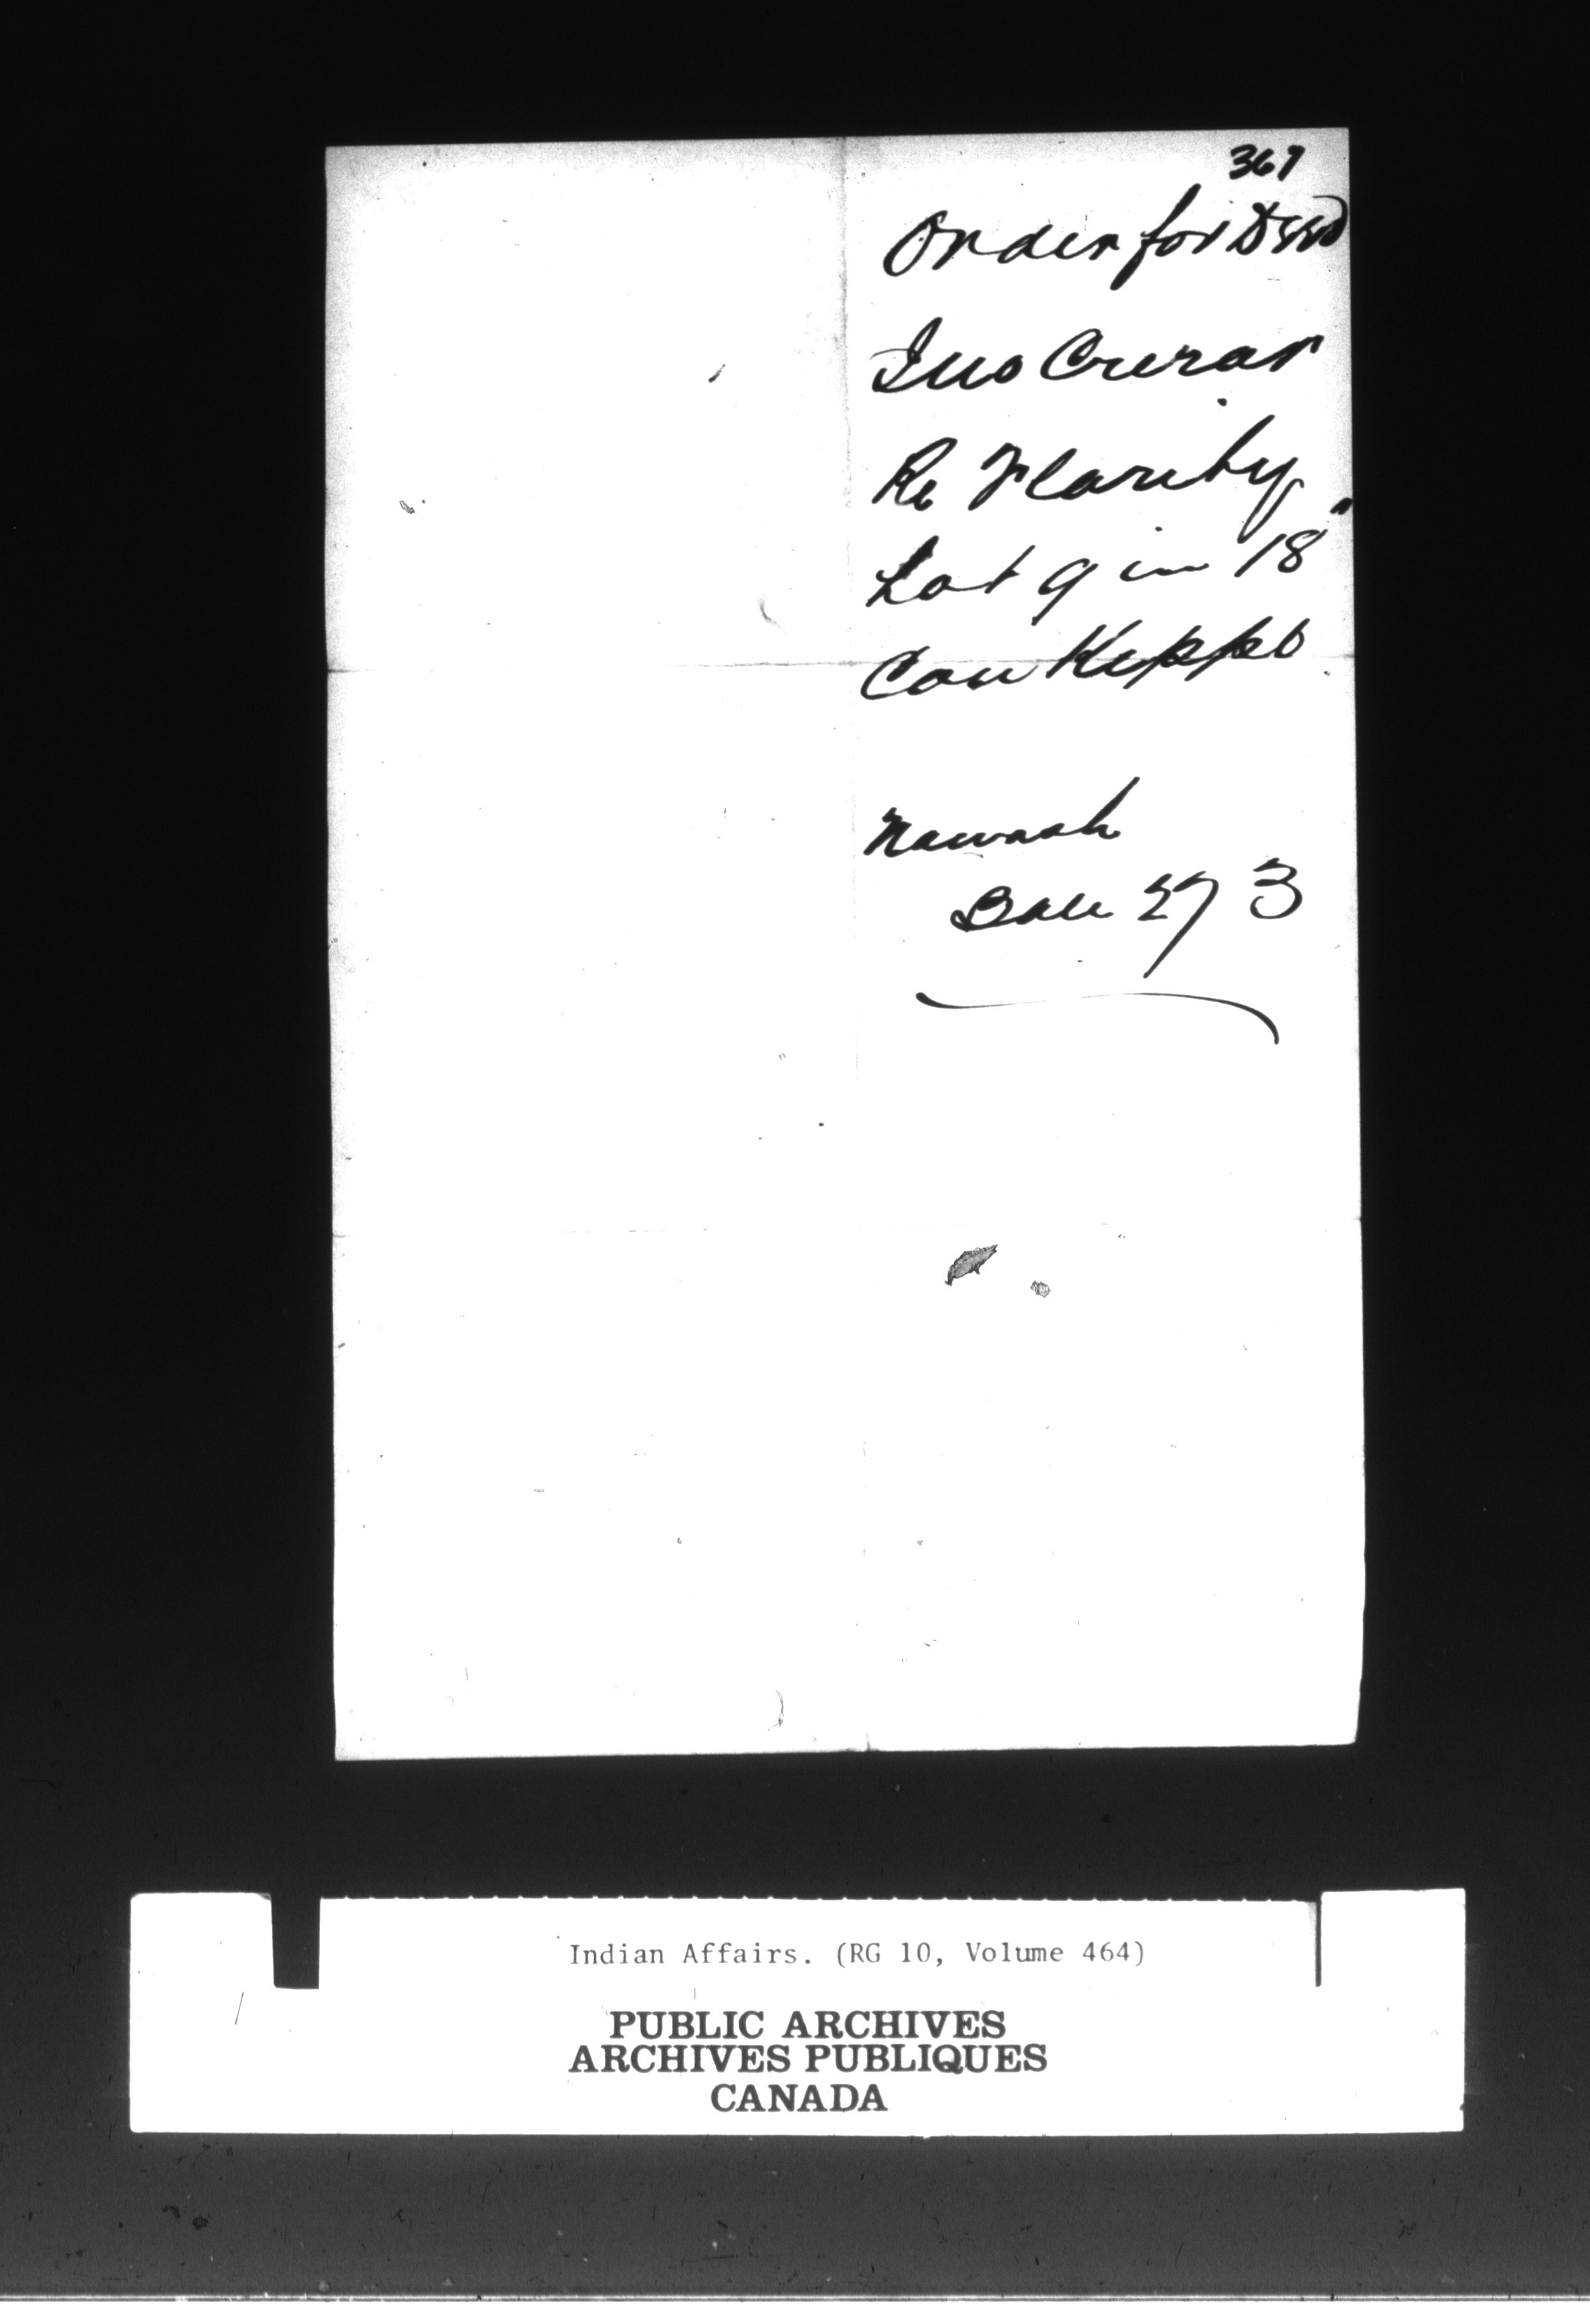 367
Order for Deed
Jno Crerar
Re Flarity
Lot 9 in 18"
Con Keppel
Nawash
Sale 27 3
Indian Affairs. (RG 10, Volume 464)
PUBLIC ARCHIVES
ARCHIVES PUBLIQUES
CANADA